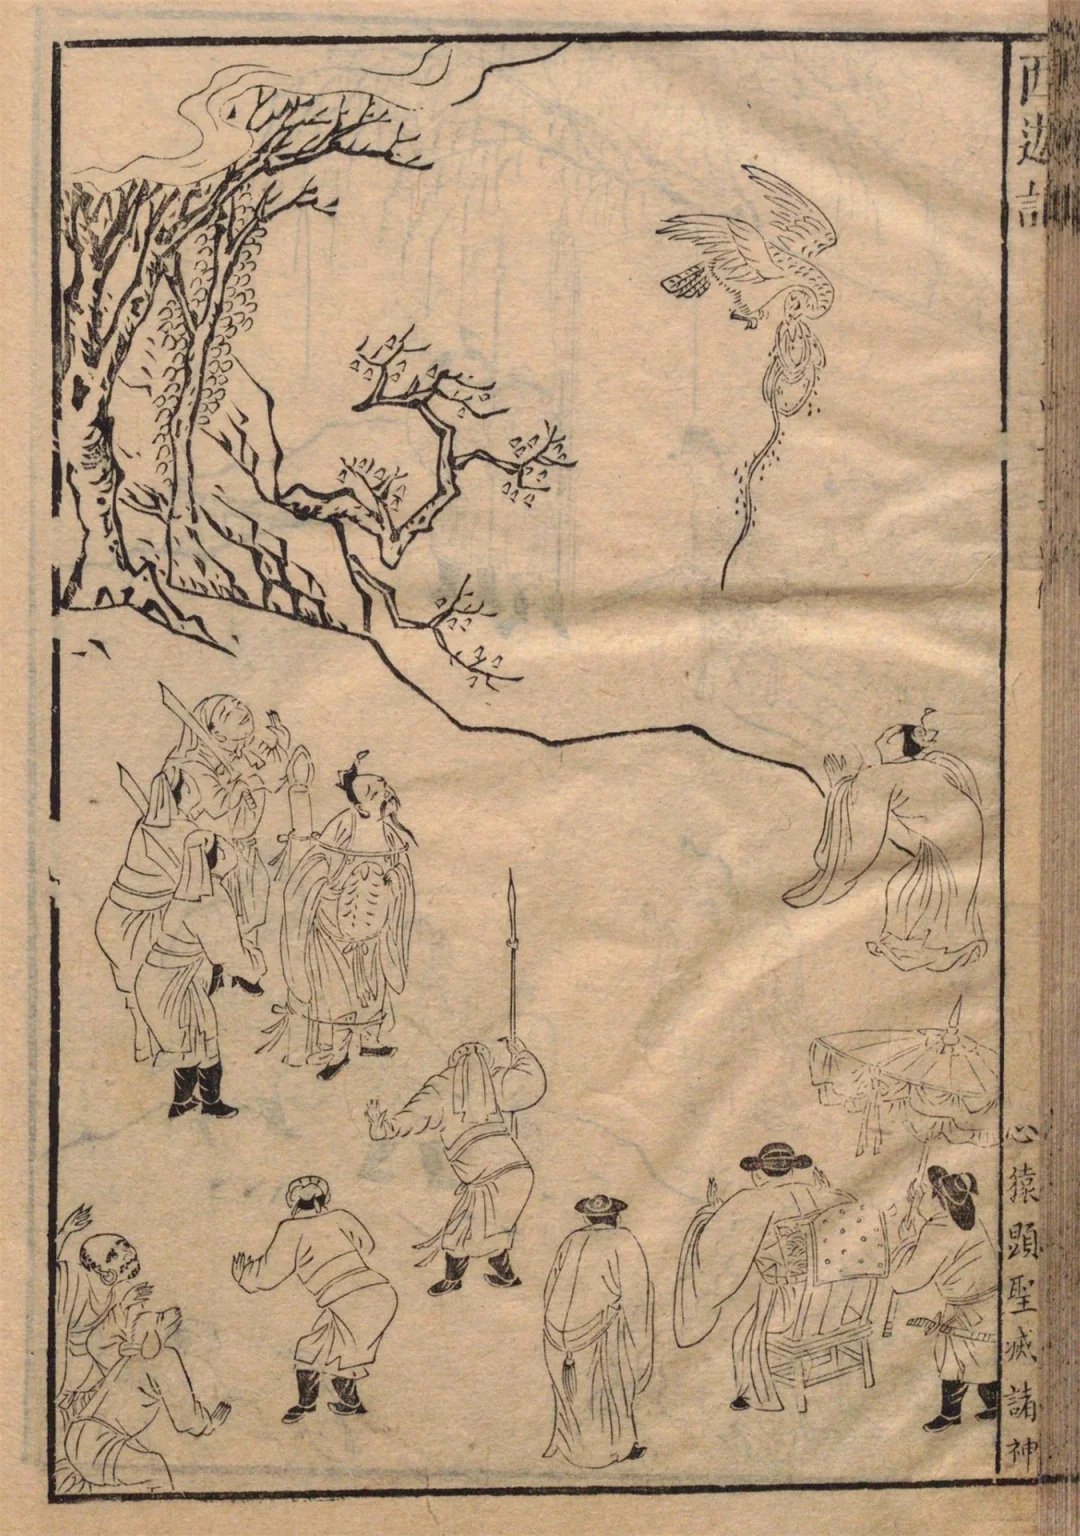 西遊記
心猿顯聖滅諸神